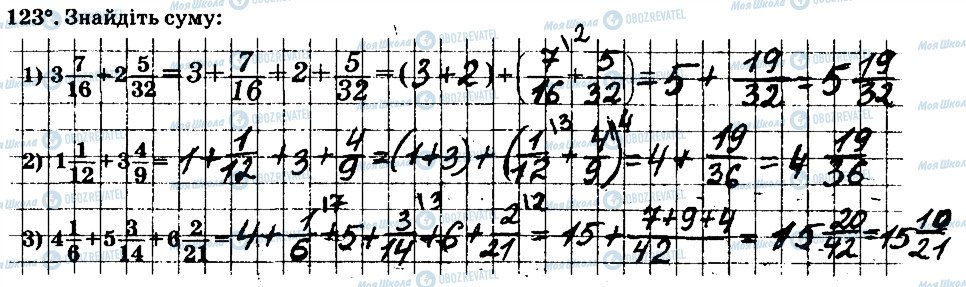 123°. Знайдіть суму:
1) 3 7/16 + 2 5/32 = 3 + 7/16 + 2 + 5/32 = (3 + 2) + (7/16 \2 + 5/32) = 5 + 19/32 = 5 19/32
2) 1 1/12 + 3 4/9 = 1 + 1/12 + 3 + 4/9 = (1 + 3) + (1/12 \3 + 4/9 \4) = 4 + 19/36 = 4 19/36
3) 4 1/6 + 5 3/14 + 6 2/21 = 4 + 1/6 \7 + 5 + 3/14 \3 + 6 + 2/21 \2 = 15 + 7+9+4/42 = 15 20/42 = 15 10/21